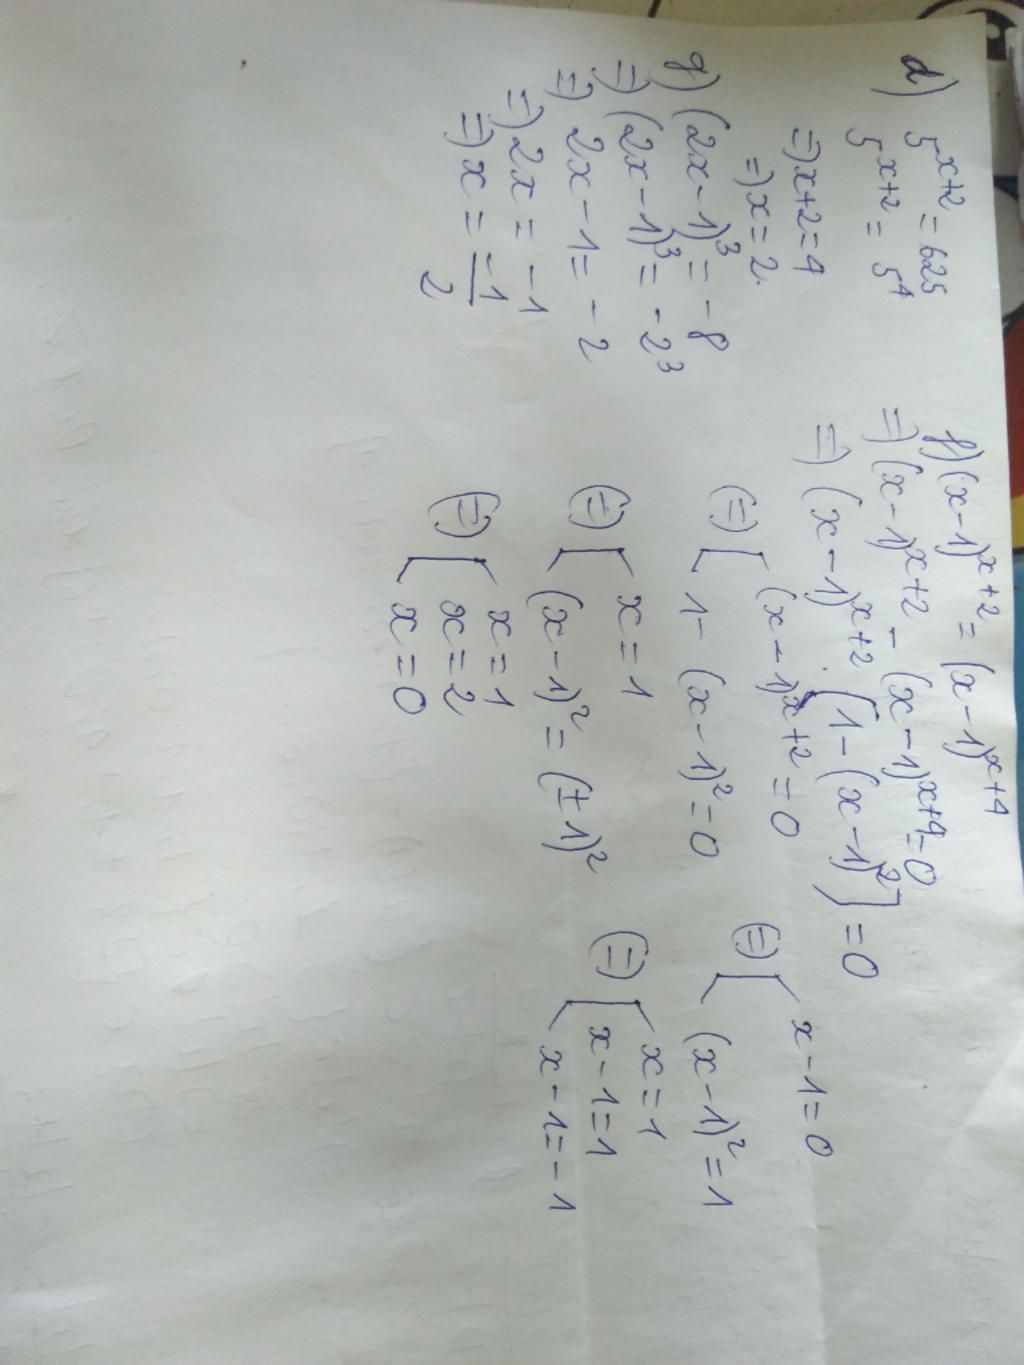 d) 5^{x+2} = 625
5^{x+2} = 5^4
=) x+2=4
=) x=2.
g) (2x-1)^3 = -8
=) (2x-1)^3 = -2^3
=) 2x-1= -2
=) 2x = -1
=) x = \frac{-1}{2}
f) (x-1)^{x+2} = (x-1)^{x+4}
=) (x-1)^{x+2} - (x-1)^{x+4}=0
=) (x-1)^{x+2} . [1-(x-1)^2] =0
(=) [ (x-1)^{x+2} =0
1- (x-1)^2 =0
(=) [ x-1=0
(x-1)^2 =1
(=) [ x=1
(x-1)^2 = (±1)^2
(=) [ x=1
x-1=1
x-1=-1
(=) [ x=1
x=2
x=0